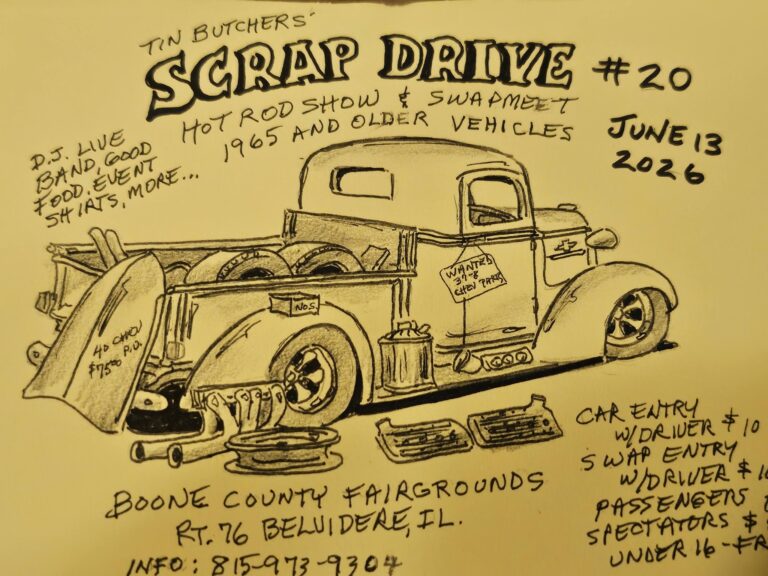 TIN BUTCHERS'
SCRAP DRIVE #20
HOT ROD SHOW & SWAPMEET
1965 AND OLDER VEHICLES
JUNE 13
2026
D.J. LIVE
BAND, GOOD
FOOD, EVENT
SHIRTS, MORE...
WANTED
37-8
CHEV PARTS
N.O.S.
40 CHEV
$75.00 P.O.
CAR ENTRY
W/DRIVER $10
SWAP ENTRY
W/DRIVER $1
PASSENGERS
SPECTATORS $
UNDER 16 - FR
BOONE COUNTY FAIRGROUNDS
RT. 76 BELVIDERE, IL.
INFO: 815-973-9304